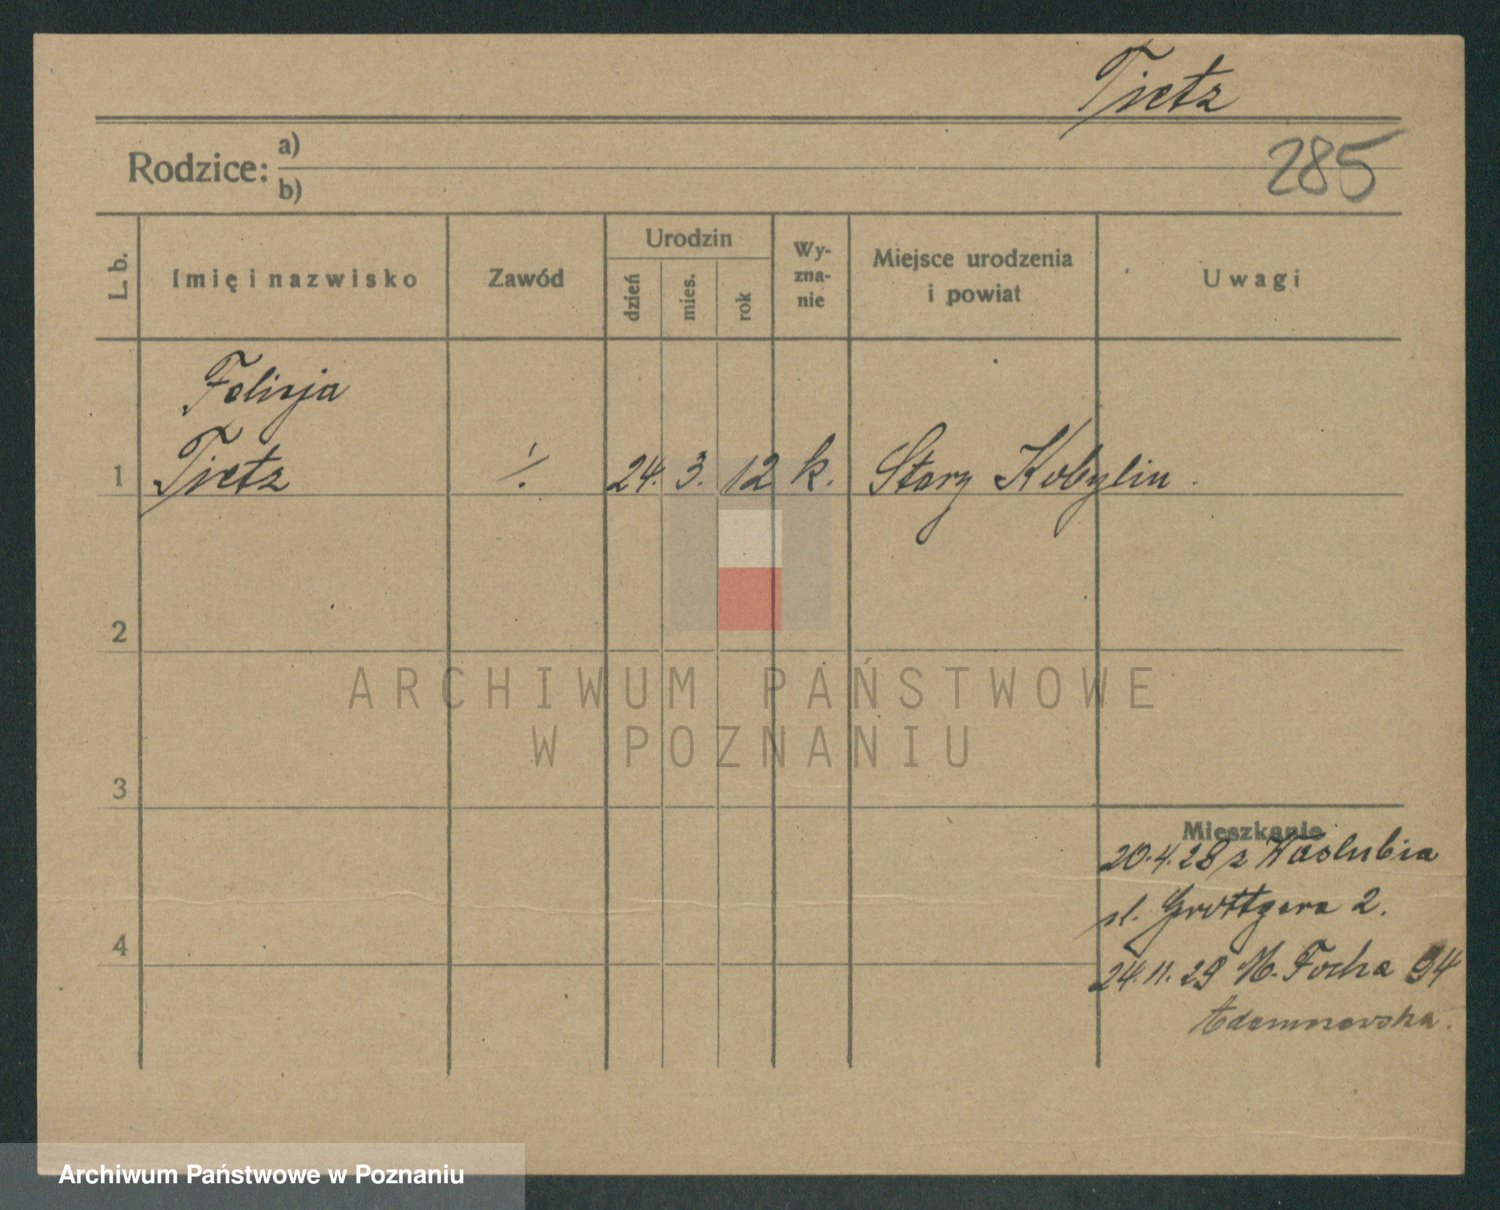 Tietz
285
Rodzice: a)
b)
L. b.
Imię i nazwisko
Zawód
Urodzin
dzień
mies.
rok
Wy-
zna-
nie
Miejsce urodzenia
i powiat
Uwagi
Felicja
1 Tietz ·/. 24. 3. 12 k. Stary Kobylin.
2
ARCHIWUM PAŃSTWOWE
W POZNANIU
3
Mieszkanie
20.4.28 z
ul. Grottgera 2.
4
24.11.29 M. Focha 94
Archiwum Państwowe w Poznaniu